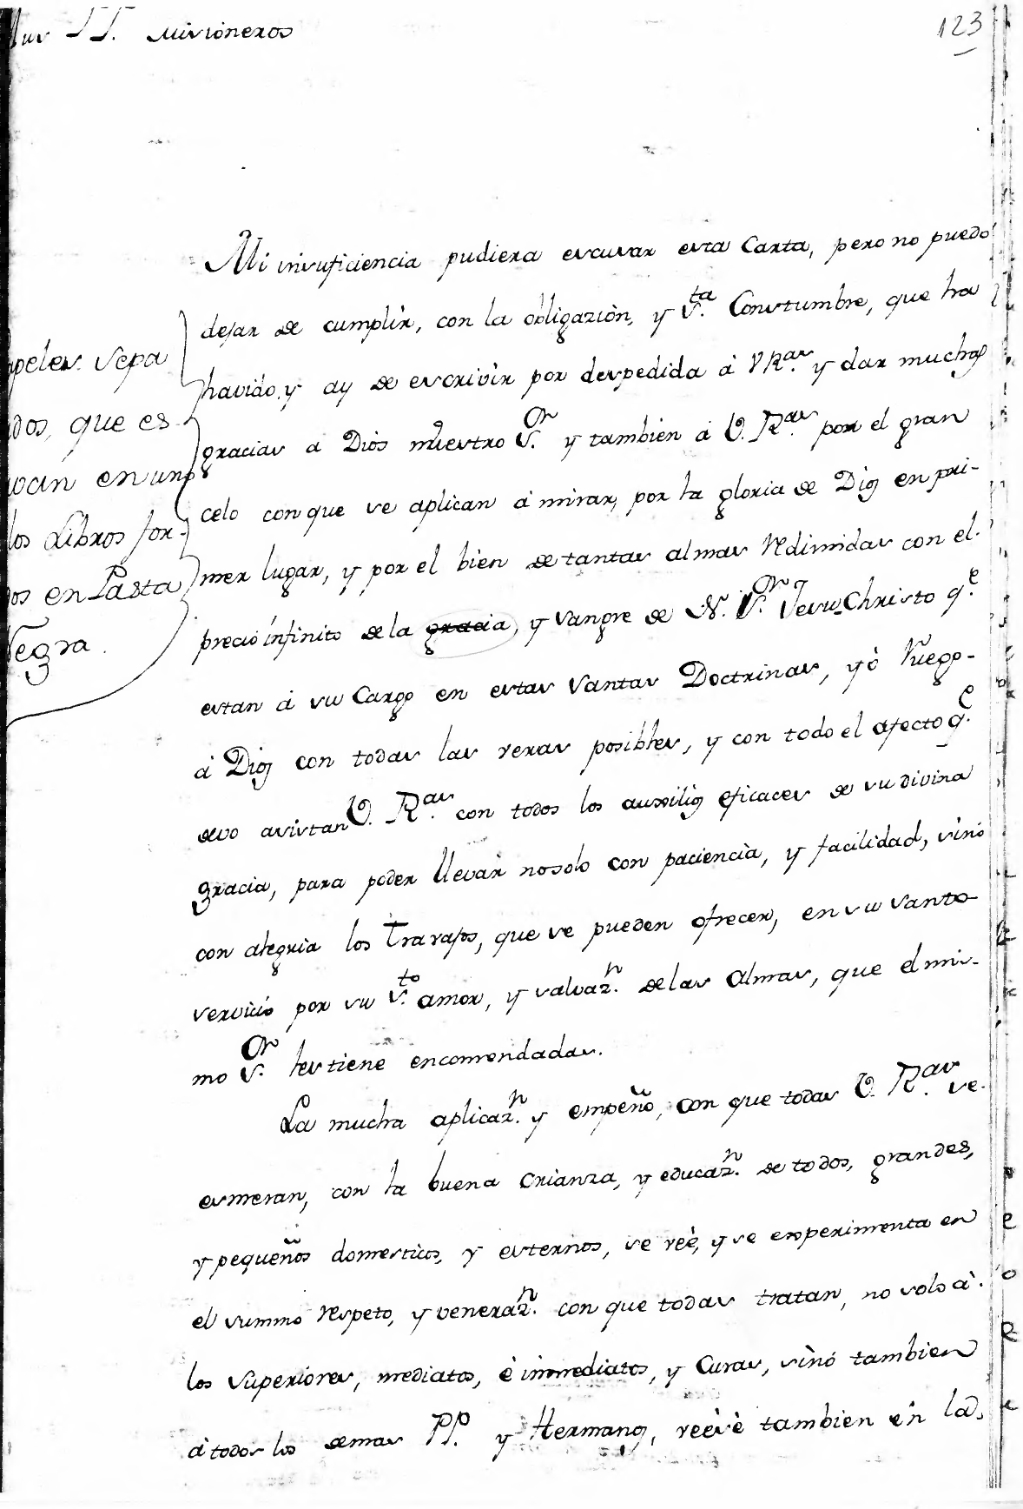 PP. Misioneros
123
Mi insuficiencia pudiera escusar esta Carta, pero no puedo
dejar de cumplir, con la obligaziòn, y S.ta Constumbre, que ha
havido, y ay de escrivir por despedida â V Ras. y dar muchas
gracias a Diòs nuestro S.or y tambien â V. Ras. por el gran
celo con que se aplican â mirar, por la gloria de Dios en pri-
mer lugar, y por el bien de tantas almas redimidas con el
precio infinito de la gracia, y Sangre de N. S.or Jesu-Christo q.e
estan â su Cargo en estas Santas Doctrinas, yò Ruego
â Dios con todas las veras posibles, y con todo el afecto q.e
devo asistan V. Ras. con todos los auxilios eficaces de su divina
gracia, para poder llevar no solo con paciencia, y facilidad, sinò
con alegria los travajos, que se pueden ofrecer, en su santo
servicio por su S.to amor, y salvaz.n de las Almas, que el mis-
mo S.or les tiene encomendadas.
La mucha aplicaz.n y empeño, con que todas V. Ras. se
esmeran, con la buena crianza, y educaz.n de todos, grandes,
y pequeños domesticos, y externos, se veè, y se experimenta en
el summo respeto, y veneraz.n con que todas tratan, no solo â
los Superiores, mediatos, è immediatos, y Curas, sinò tambien
â todos los demas PP. y Hermanos, veèse tambien en la
peles sepa
dos, que es
en uno
los Libros for-
dos en Pasta
Negra.